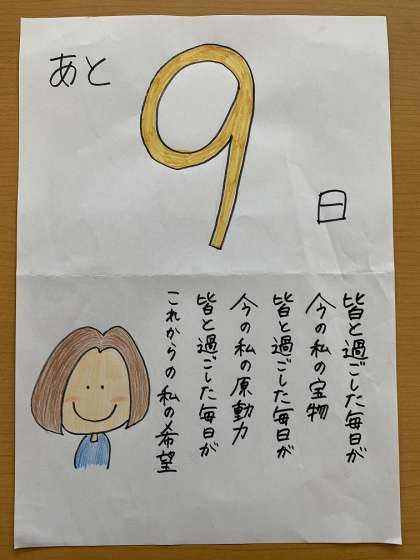 あと
9
日
皆と過ごした毎日が
今の私の宝物
皆と過ごした毎日が
今の私の原動力
皆と過ごした毎日が
これからの私の希望